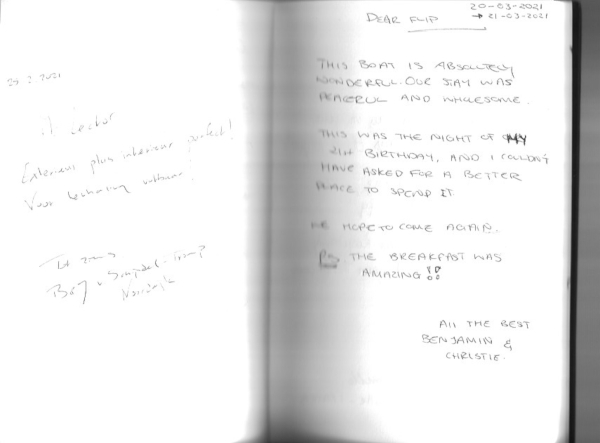 2021
Exterieur plus interieur perfect!
Voor
Tot ziens
20-03-2021
→ 21-03-2021
DEAR FLIP
THIS BOAT IS ABSOLUTELY
WONDERFUL. OUR STAY WAS
PEACEFUL AND WHOLESOME.
THIS WAS THE NIGHT OF MY
21st BIRTHDAY, AND I COULDN'T
HAVE ASKED FOR A BETTER
PLACE TO SPEND IT.
WE HOPE TO COME AGAIN.
PS. THE BREAKFAST WAS
AMAZING!!
All THE BEST
BENJAMIN &
CHRISTIE.